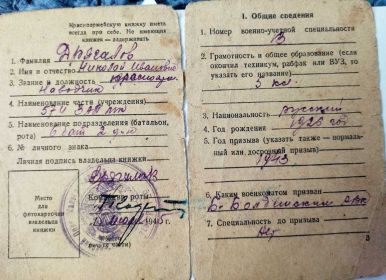 Красноармейскую книжку иметь
всегда при себе. Не имеющих
книжек — задерживать
1. Фамилия
2. Имя и отчество Николай Иванович
3. Звание и должность красноарм.
наводчик
4. Наименование части (учреждения)
5. Наименование подразделения (батальон,
рота) 6 бат 2 див
6. № личного знака
Личная подпись владельца книжки
Место
для
фотокарточки
владельца
книжки
Командир роты
1945 г.
I. Общие сведения
1. Номер военно-учетной специальности
3
2. Грамотность и общее образование (если
окончил техникум, рабфак или ВУЗ, то
указать его название)
5 кл.
3. Национальность русский
4. Год рождения 1926 год
5. Год призыва (указать также — нормаль-
ный или досрочный призыв)
1943
6. Каким военкоматом призван
Б. РВК
7. Специальность до призыва
Нет
3